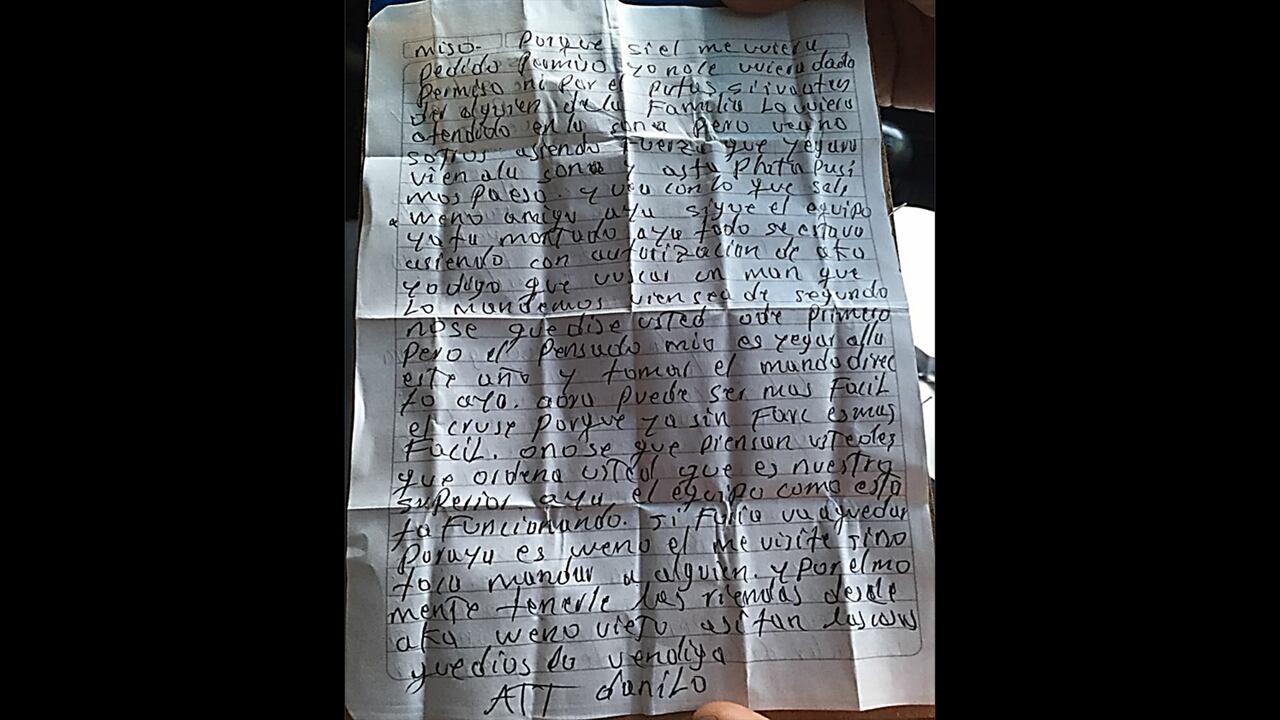 miso- Porque si el me uviera
Pedido Permiso yo no le uviera dado
Permiso ni por el putas si iva aten
der alguien de la Familia Lo uviera
atendido en la sona pero vea no
sotros asiendo Fuerza que yegara
vien ala sona y asta Phata pusi
mos pa eso. y vea con lo que sale
weno amigo aya sigue el equipo
ya ta montado aya todo se estava
asiendo con autorizacion de aka
yo digo que vuscar un man que
Lo mandemos vien sea de segundo
nose que dise usted ode primero
Pero el Pensado mio es yegar alla
este año y tomar el mando direc
to aya. aora puede ser mas Facil
el cruse porque ya sin Farc es mas
Facil. onose que piensan ustedes
que ordena usted que es nuestro
superior. aya el equipo como esta
ta Funcionando. si Furia va a quedar
Por aya es weno el me visite sino
toca mandar a alguien. y Por el mo
mento tenerle las riendas desde
aka weno viejo asi tan las cosas
que dios lo vendiga
ATT daniLo